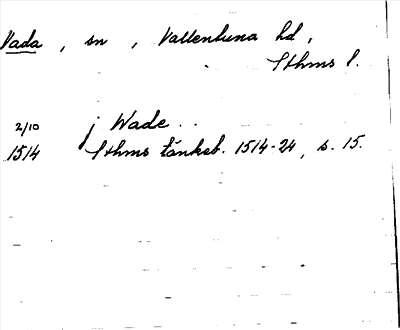 Vada, sn, Vallentuna hd,
Sthms l.
2/10 j Wade..
1514 Sthms tänkeb. 1514-24, s. 15.